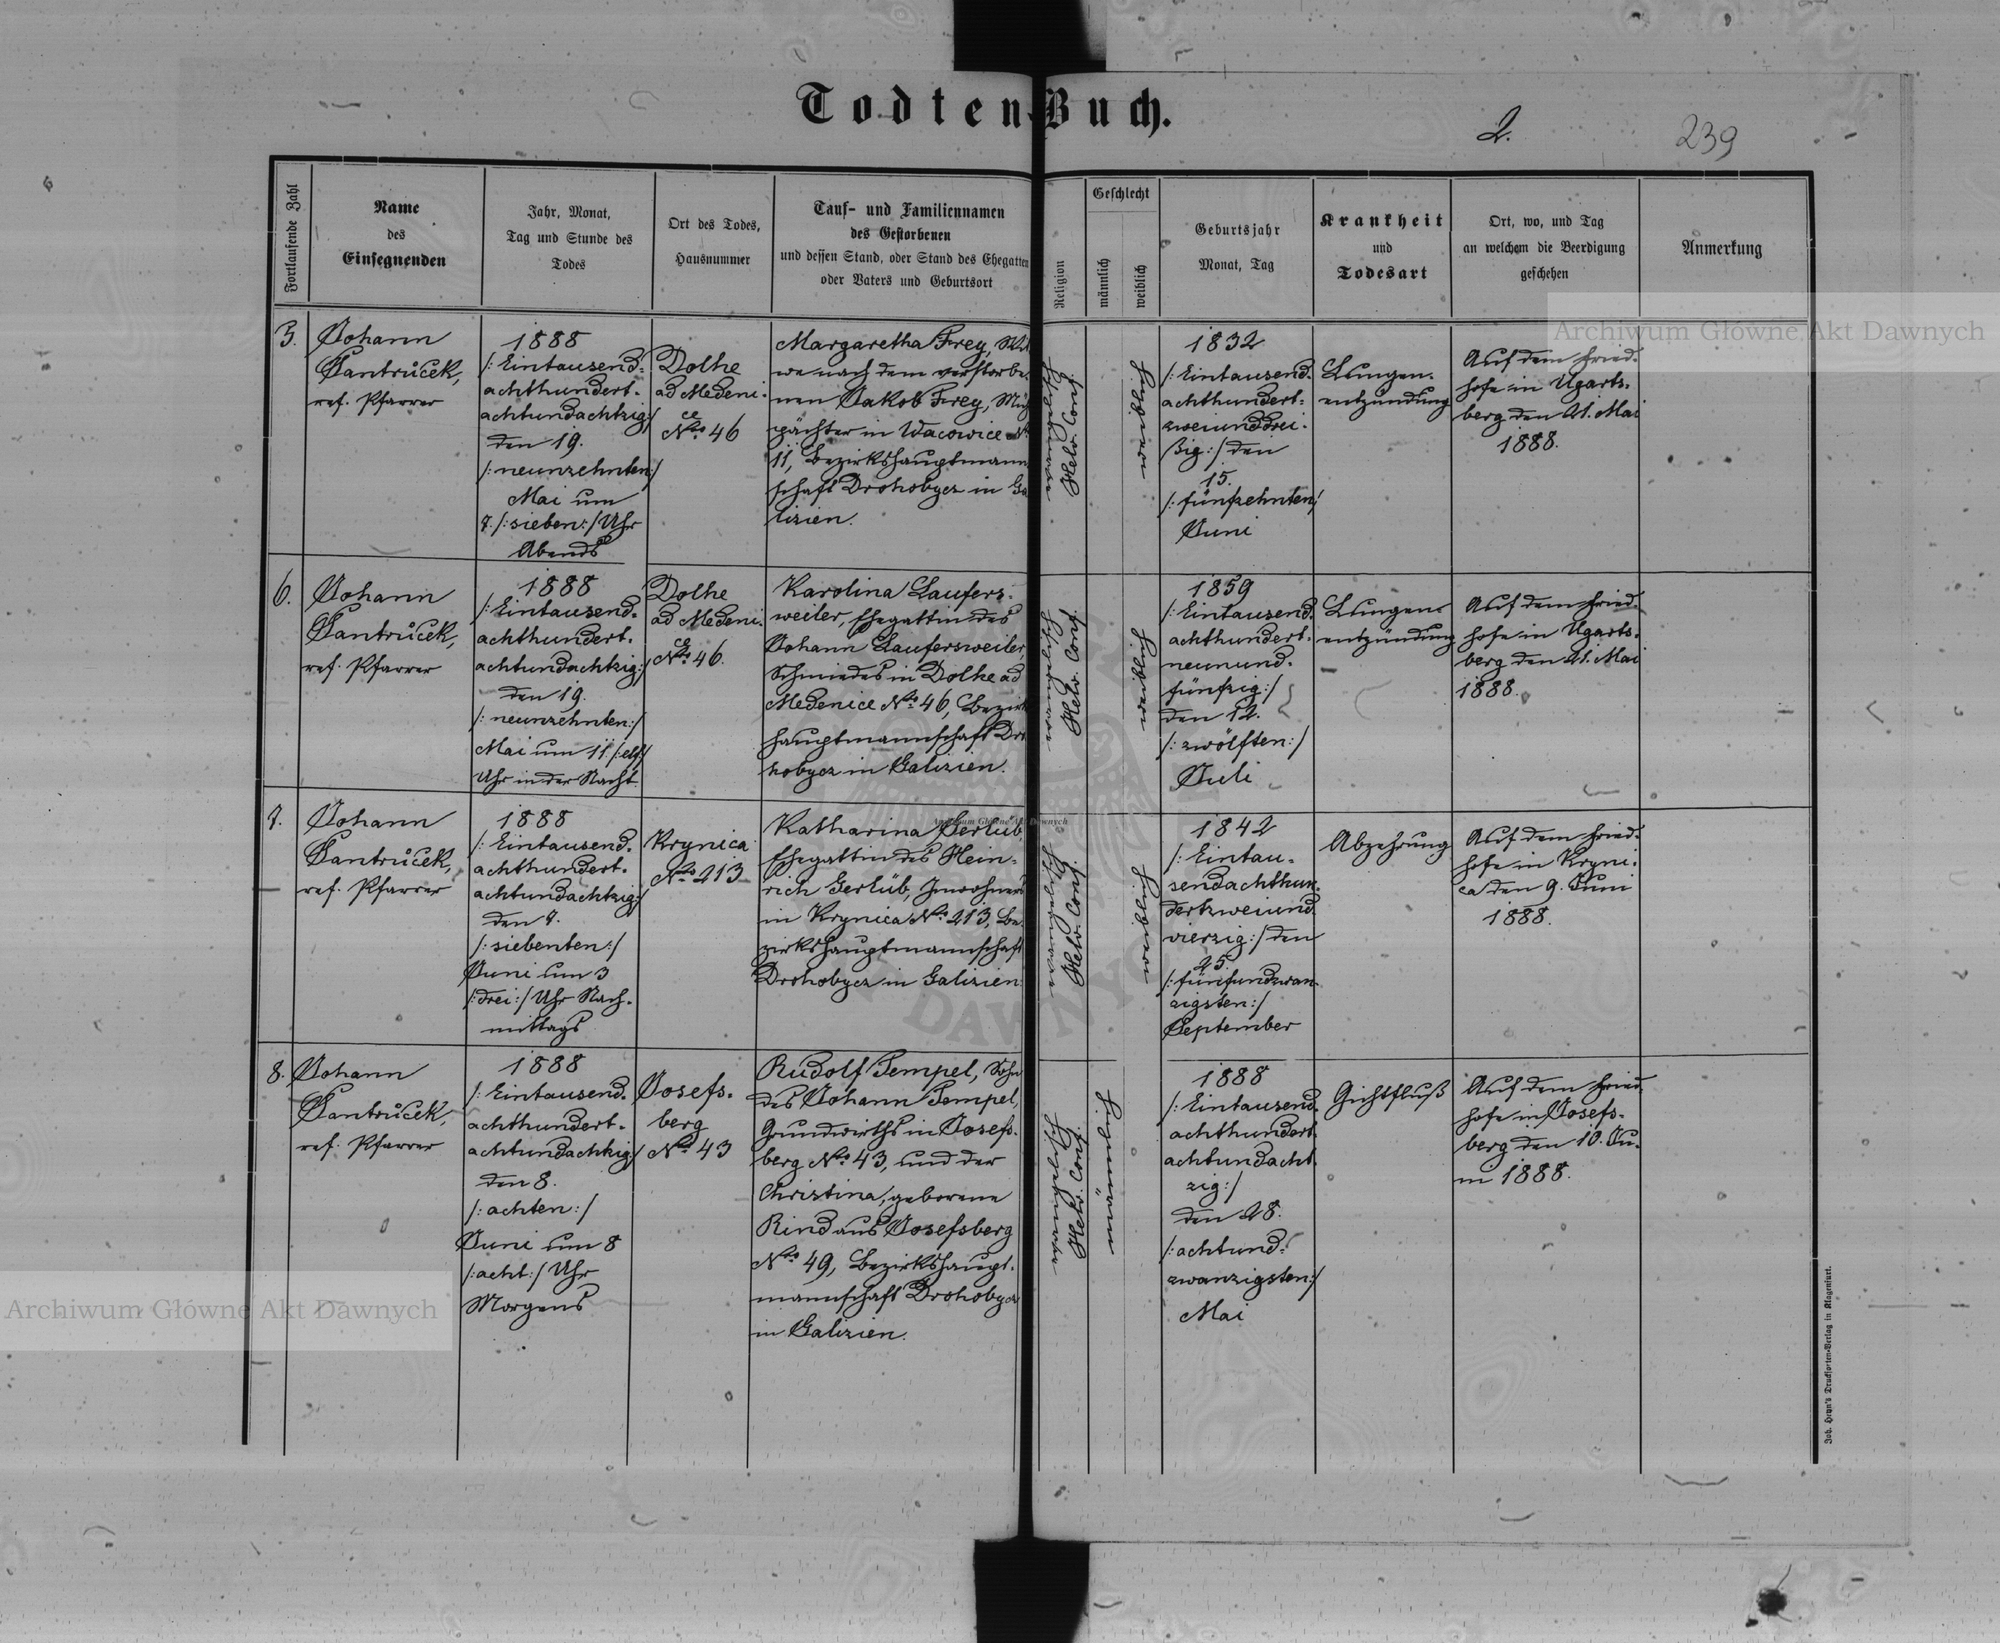 Todten-Buch.
2.
239
Fortlaufende Zahl
Name
des
Einsegnenden
Jahr, Monat,
Tag und Stunde des
Todes
Ort des Todes,
Hausnummer
Tauf- und Familiennamen
des Gestorbenen
und dessen Stand, oder Stand des Ehegatten
oder Vaters und Geburtsort
Religion
Geschlecht
männlich
weiblich
Geburtsjahr
Monat, Tag
Krankheit
und
Todesart
Ort, wo, und Tag
an welchem die Beerdigung
geschehen
Anmerkung
5.
Johann
Jantrůček,
ref. Pfarrer
1888
/: Eintausend-
achthundert-
achtundachtzig:/
den 19.
/: neunzehnten:/
Mai um
7. /: sieben:/ Uhr
Abends
Dolhe
ad Medeni-
ce
No. 46
Margaretha Frey, Wit
we nach dem verstorbe-
nen Jakob Frey, Müh
pächter in Wacowice No.
11, Bezirkshauptmann
schaft Drohobycz in Ga
lizien.
evangelisch
Helv. Conf.
weiblich
1832
/: Eintausend-
achthundert-
zweiunddrei-
ßig:/ den
15.
/: fünfzehnten:/
Juni
Lungen-
entzündung
Auf dem Fried-
hofe in Ugarts-
berg den 21. Mai
1888.
6.
Johann
Jantrůček,
ref. Pfarrer
1888
/: Eintausend-
achthundert-
achtundachtzig:/
den 19.
/: neunzehnten:/
Mai um 11 /: elf:/
Uhr in der Nacht.
Dolhe
ad Medeni-
ce
No. 46.
Karolina Laufers-
weiler, Ehegattin des
Johann Laufersweiler,
Schmiedes in Dolhe ad
Medenice No. 46, Bezirks
hauptmannschaft Dro
hobycz in Galizien.
evangelisch
Helv. Conf.
weiblich
1859
/: Eintausend-
achthundert-
neunund-
fünfzig:/
den 12.
/: zwölften:/
Juli
Lungen-
entzündung
Auf dem Fried-
hofe in Ugarts-
berg den 21. Mai
1888.
7.
Johann
Jantrůček,
ref. Pfarrer
1888
/: Eintausend-
achthundert-
achtundachtzig:/
den 7.
/: siebenten:/
Juni um 3
/: drei:/ Uhr Nach-
mittags
Krynica
No. 213
Katharina Gerlüb,
Ehegattin des Hein-
rich Gerlüb, Inwohners
in Krynica No. 213, Be-
zirkshauptmannschaft
Drohobycz in Galizien.
evangelisch
Helv. Conf.
weiblich
1842
/: Eintau-
sendachthun-
dertzweiund-
vierzig:/ den
25.
/: fünfundzwan-
zigsten:/
September
Abzehrung
Auf dem Fried-
hofe in Kryni-
ca den 9. Juni
1888.
8.
Johann
Jantrůček,
ref. Pfarrer
1888
/: Eintausend-
achthundert-
achtundachtzig:/
den 8.
/: achten:/
Juni um 8
/: acht:/ Uhr
Morgens
Josefs-
berg
No. 43
Rudolf Tempel, Sohn
des Johann Tempel,
Grundwirths in Josefs-
berg No. 43, und der
Christina, geborene
Rind aus Josefsberg
No. 49, Bezirkshaupt-
mannschaft Drohobycz
in Galizien.
evangelisch
Helv. Conf.
männlich
1888
/: Eintausend-
achthundert-
achtundacht-
zig:/
den 28.
/: achtund-
zwanzigsten:/
Mai
Gichtfluß
Auf dem Fried-
hofe in Josefs-
berg den 10. Ju-
ni 1888.
Joh. Heyn's Drucksorten-Verlag in Klagenfurt.
Archiwum Główne Akt Dawnych
Archiwum Główne Akt Dawnych
Archiwum Główne Akt Dawnych
DAWNYCH